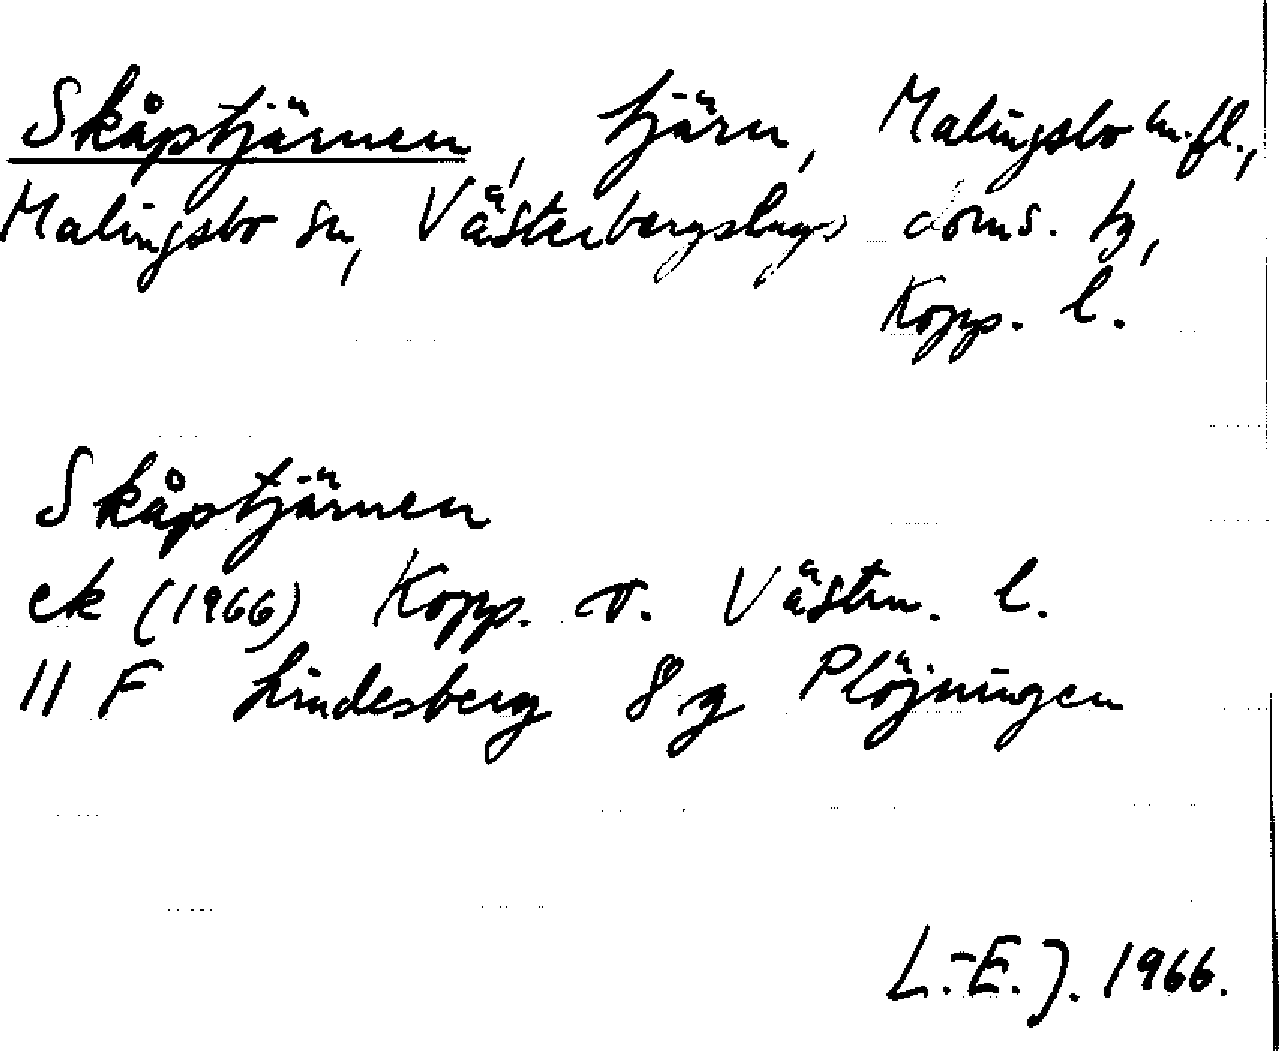 Skåptjärnen, tjärn, Malingsbo m.fl.,
Malingsbo sn, Västerbergslags doms. tg,
Kopp. l.
Skåptjärnen
ek (1966) Kopp. o. Västm. l.
11 F Lindesberg 8 g Plöjningen
L.-E. J. 1966.